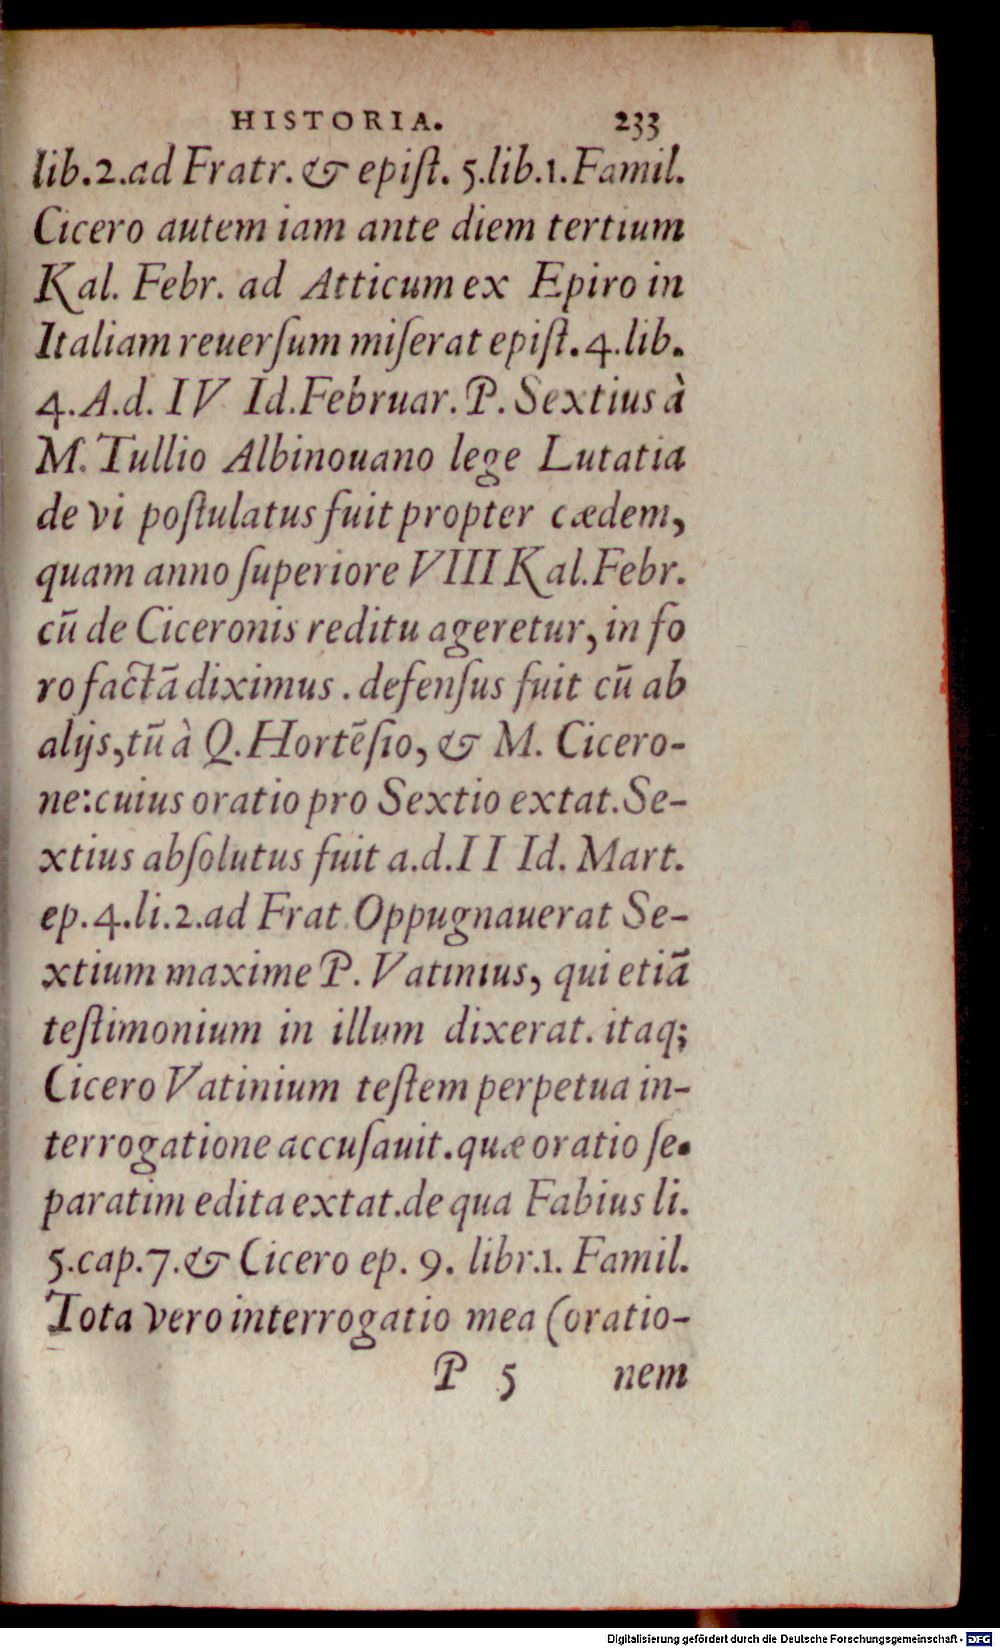 HISTORIA. 233
lib.2.ad Fratr. & epiſt. 5.lib.1.Famil.
Cicero autem iam ante diem tertium
Kal. Febr. ad Atticum ex Epiro in
Italiam reuerſum miſerat epiſt.4.lib.
4.A.d. IV Id.Februar.P.Sextius à
M. Tullio Albinouano lege Lutatia
de vi poſtulatus fuit propter cædem,
quam anno ſuperiore VIII Kal.Febr.
cū de Ciceronis reditu ageretur, in fo
ro factā diximus . defenſus fuit cū ab
alijs,tū à Q.Hortēſio, & M. Cicero-
ne:cuius oratio pro Sextio extat.Se-
xtius abſolutus fuit a.d.II Id. Mart.
ep.4.li.2.ad Frat Oppugnauerat Se-
xtium maxime P. Vatinius, qui etiā
teſtimonium in illum dixerat. itaq;
Cicero Vatinium teſtem perpetua in-
terrogatione accuſauit.quæ oratio ſe-
paratim edita extat.de qua Fabius li.
5.cap.7.& Cicero ep. 9. libr.1. Famil.
Tota vero interrogatio mea (oratio-
P 5 nem
Digitalisierung gefördert durch die Deutsche Forschungsgemeinschaft - DFG